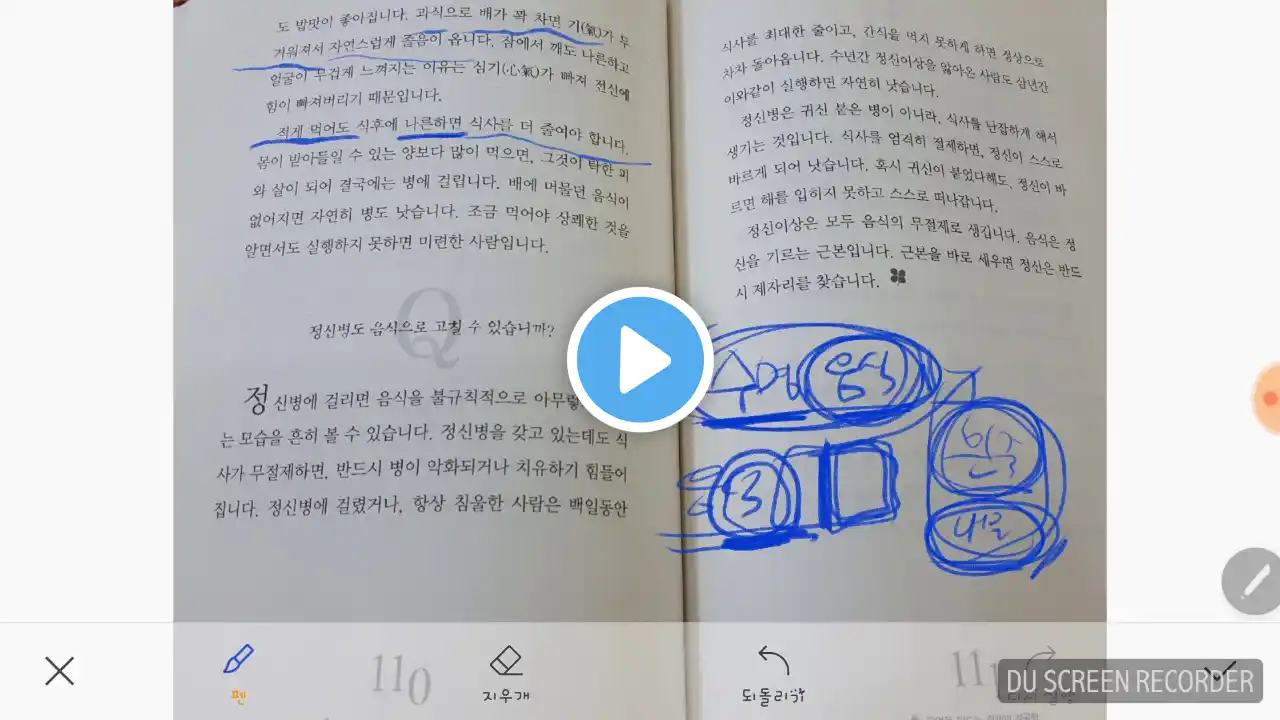 도 밥맛이 좋아집니다. 과식으로 배가 꽉 차면 기(氣)가 무
거워져서 자연스럽게 졸음이 옵니다. 잠에서 깨도 나른하고
얼굴이 무겁게 느껴지는 이유는 심기(心氣)가 빠져 전신에
힘이 빠져버리기 때문입니다.
적게 먹어도 식후에 나른하면 식사를 더 줄여야 합니다.
몸이 받아들일 수 있는 양보다 많이 먹으면, 그것이 탁한 피
와 살이 되어 결국에는 병에 걸립니다. 배에 머물던 음식이
없어지면 자연히 병도 낫습니다. 조금 먹어야 상쾌한 것을
알면서도 실행하지 못하면 미련한 사람입니다.
Q
정신병도 음식으로 고칠 수 있습니까?
정신병에 걸리면 음식을 불규칙적으로 아무렇
는 모습을 흔히 볼 수 있습니다. 정신병을 갖고 있는데도 식
사가 무절제하면, 반드시 병이 악화되거나 치유하기 힘들어
집니다. 정신병에 걸렸거나, 항상 침울한 사람은 백일동안
110
식사를 최대한 줄이고, 간식을 먹지 못하게 하면 정상으로
차차 돌아옵니다. 수년간 정신이상을 앓아온 사람도 삼년간
이와같이 실행하면 자연히 낫습니다.
정신병은 귀신 붙은 병이 아니라, 식사를 난잡하게 해서
생기는 것입니다. 식사를 엄격히 절제하면, 정신이 스스로
바르게 되어 낫습니다. 혹시 귀신이 붙었다해도, 정신이 바
르면 해를 입히지 못하고 스스로 떠나갑니다.
정신이상은 모두 음식의 무절제로 생깁니다. 음식은 정
신을 기르는 근본입니다. 근본을 바로 세우면 정신은 반드
시 제자리를 찾습니다.
수면 음식
3
펜
지우개
되돌리기
DU SCREEN RECORDER